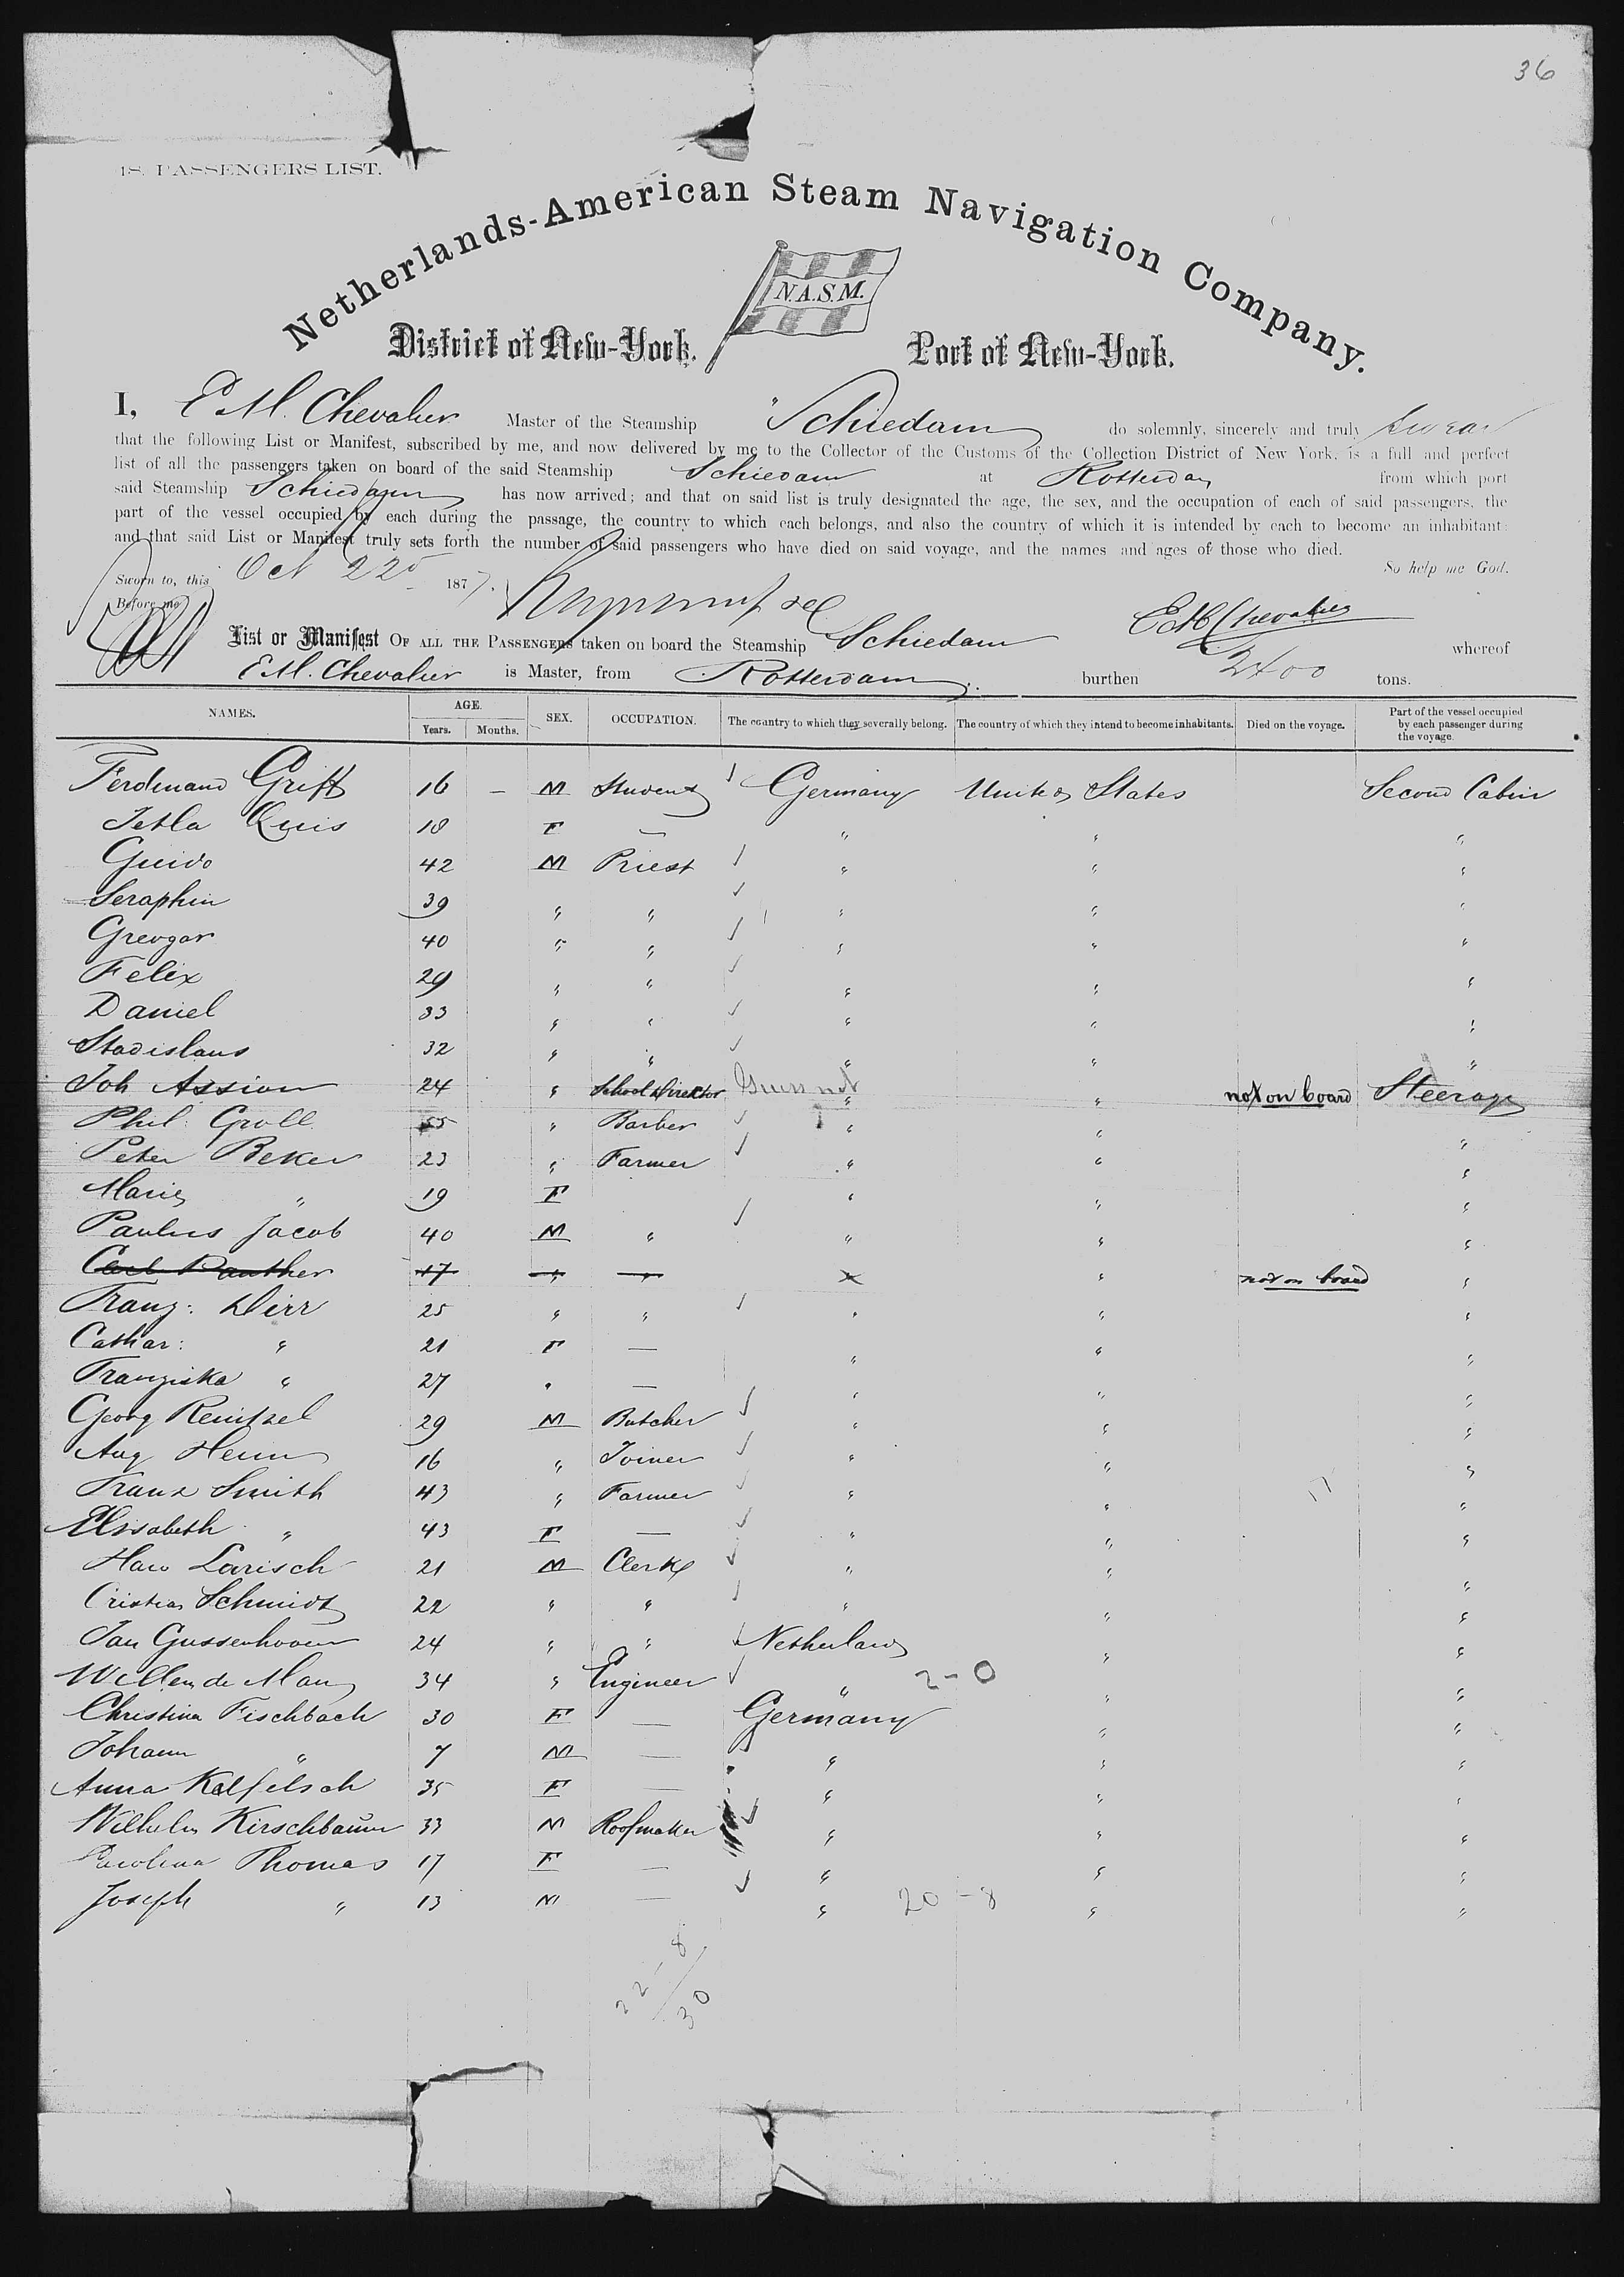 36
18. PASSENGERS LIST.
Netherlands-American Steam Navigation Company.
N.A.S.M.
District of New-York. Port of New-York.
I, E.M. Chevalier Master of the Steamship "Schiedam do solemnly, sincerely and truly swear
that the following List or Manifest, subscribed by me, and now delivered by me to the Collector of the Customs of the Collection District of New York, is a full and perfect
list of all the passengers taken on board of the said Steamship Schiedam at Rotterdam from which port
said Steamship Schiedam has now arrived; and that on said list is truly designated the age, the sex, and the occupation of each of said passengers, the
part of the vessel occupied by each during the passage, the country to which each belongs, and also the country of which it is intended by each to become an inhabitant:
and that said List or Manifest truly sets forth the number of said passengers who have died on said voyage, and the names and ages of those who died.
So help me God.
Sworn to, this Oct 22 1877.
Before me
E M Chevalier
List or Manifest OF ALL THE PASSENGERS taken on board the Steamship Schiedam whereof
E.M. Chevalier is Master, from Rotterdam burthen 2400 tons.
NAMES. AGE. Years. Months. SEX. OCCUPATION. The country to which they severally belong. The country of which they intend to become inhabitants. Died on the voyage. Part of the vessel occupied by each passenger during the voyage.
Ferdinand Grift 16 – M Student Germany United States Second Cabin
18 F — " " "
Guido 42 M Priest " " "
Seraphin 39 " " " " "
Greogar 40 " " " " "
Felix 29 " " " " "
Daniel 33 " " " " "
Stadislaus 32 " " " " "
Joh Assion 24 " School Direktor " " not on board Steerage
Phil. Groll 55 " Barber " " "
Peter Beker 23 " Farmer " " "
Marie " 19 F " " "
Paulus Jacob 40 M " " " "
Carl Panther 17 " — " not on board "
Franz: Dirr 25 " " " " "
Cathar: " 21 F — " " "
Franziska " 27 " — " " "
Georg 29 M Butcher " " "
Aug Henn 16 " Joiner " " "
Franz Smith 43 " Farmer " " "
Elisabeth " 43 F — " " "
Larisch 21 M Clerk " " "
Cristian Schmidt 22 " " " " "
Jan Gussenhoven 24 " " Netherland " "
Willem de Man 34 " Engineer " 2-0 " "
Christina Fischbach 30 F — Germany " "
Johann " 7 M — " " "
Anna 35 F — " " "
Wilhelm Kirschbaum 33 M Roofmaker " " "
Carolina Thomas 17 F — " " "
Joseph " 13 M — " 20-8 " "
22-8
30